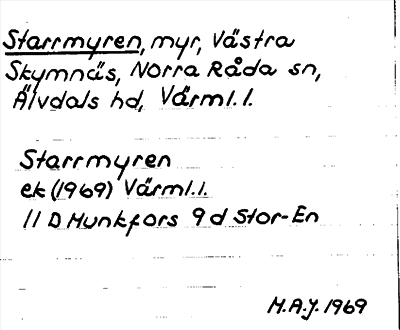 Starrmyren, myr, Västra
Skymnäs, Norra Råda sn,
Älvdals hd, Värml. l.
Starrmyren
ek (1969) Värml. l.
11 D Munkfors 9 d Stor-En
M.A.J. 1969